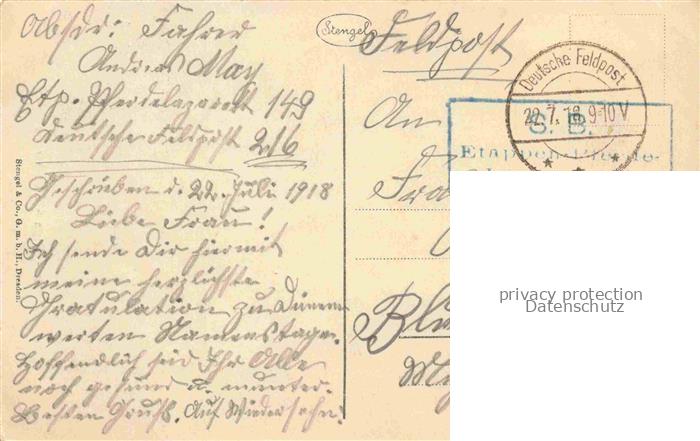 Absdr: Fahrer
Andreas May
Etp. Pferdelazarett 149
Deutsche Feldpost 216
Geschrieben d. 22. Juli 1918
Liebe Frau!
Ich sende Dir hiermit
meine herzlichste
Gratulation zu Deinem
werten Namenstage.
Hoffendlich seid Ihr Alle
noch gesund u. munter.
Besten Gruß. Auf Wiedersehn!
Stengel & Co., G. m. b. H., Dresden.
Stengel
Feldpost
An
Deutsche Feldpost
22.7.18 9-10 V
S. B.
privacy protection
Datenschutz